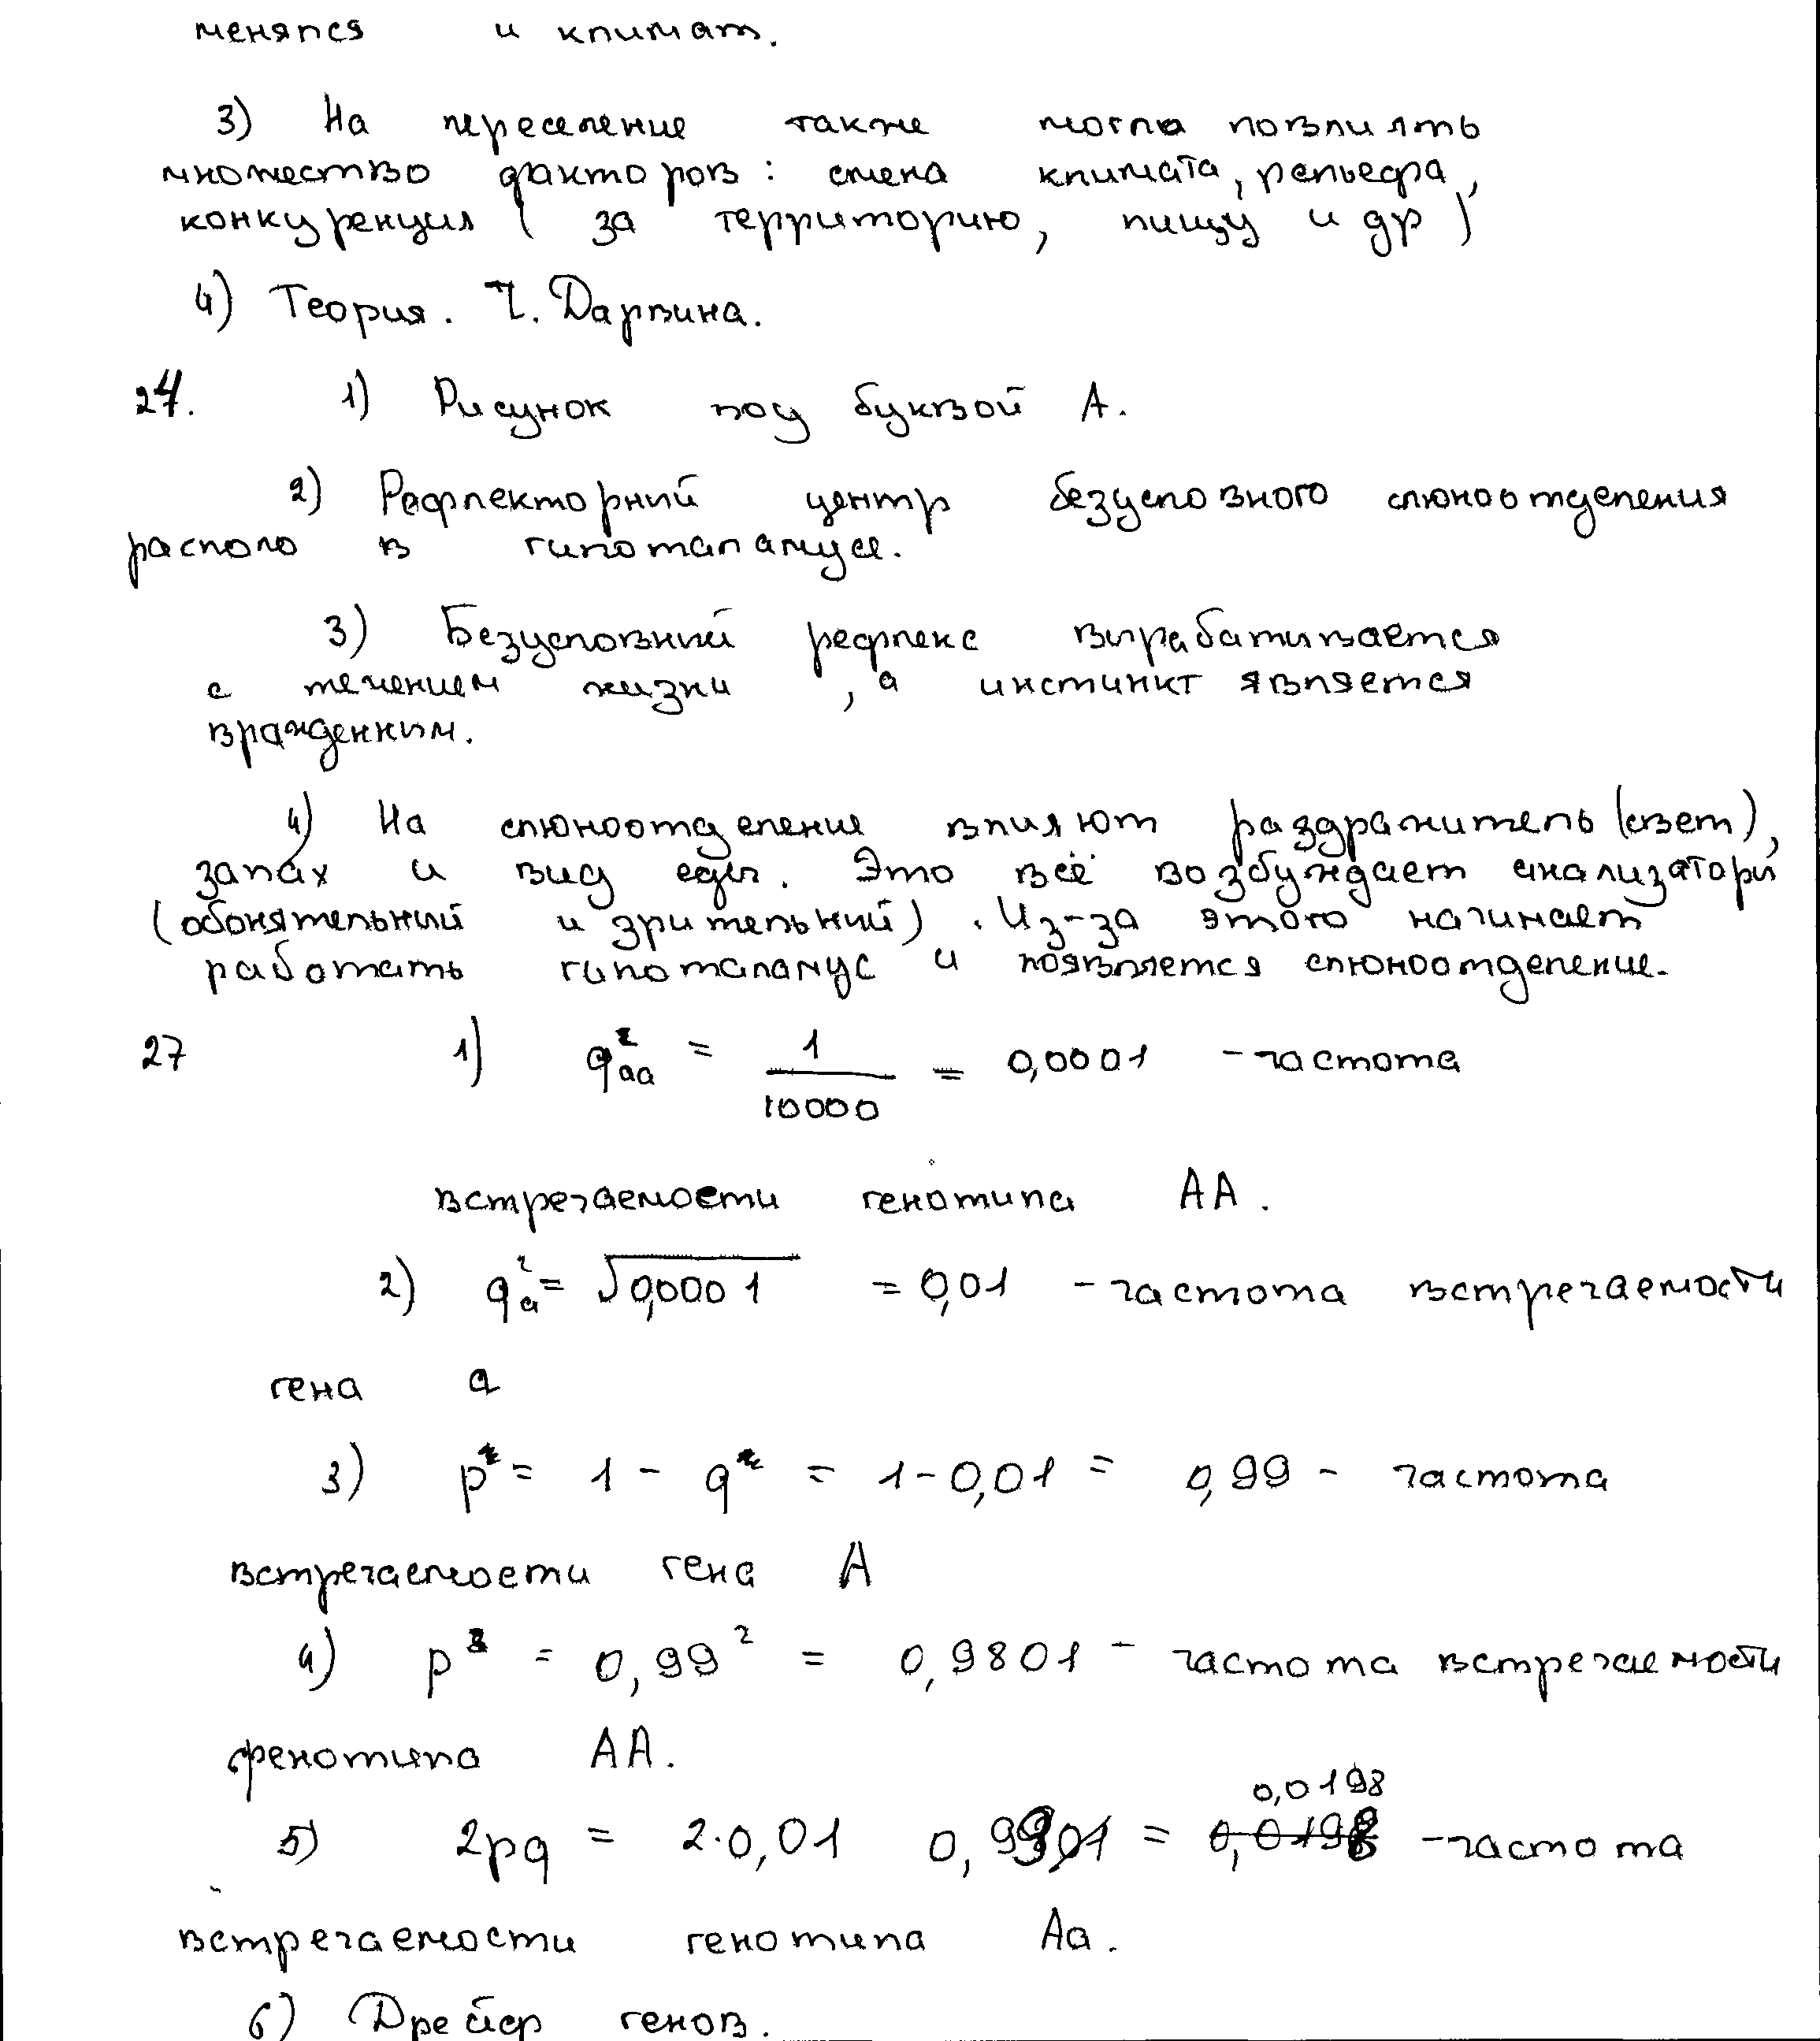 менялся и климат.
3) На переселение также могла повлиять
множество факторов: смена климата, рельефа,
конкуренция ( за территорию, пищу и др )
4) Теория. Ч. Дарвина.
24. 1) Рисунок под буквой А.
2) Рефлекторний центр безусловного слюноотделения
располо в гипоталамусе.
3) Безусловний рефлекс вирабативается
с течением жизни , а инстинкт является
врожденним.
4) На слюноотделение влияют раздражитель (свет),
запах и вид еды. Это всё возбуждает анализатори
(обонятельний и зрительний). Из-за этого начинает
работать гипоталамус и появляется слюноотделение.
27 1) q²aa = 1/10000 = 0,0001 - частота
встречаемости генотипа АА.
2) q²a = √0,0001 = 0,01 - частота встречаемости
гена a
3) p² = 1 - q² = 1 - 0,01 = 0,99 - частота
встречаемости гена А
4) p² = 0,99² = 0,9801 - частота встречаемости
фенотипа АА.
0,0198
5) 2pq = 2·0,01 0,99 = 0,0198 - частота
встречаемости генотипа Аа.
6) Дрейф генов.